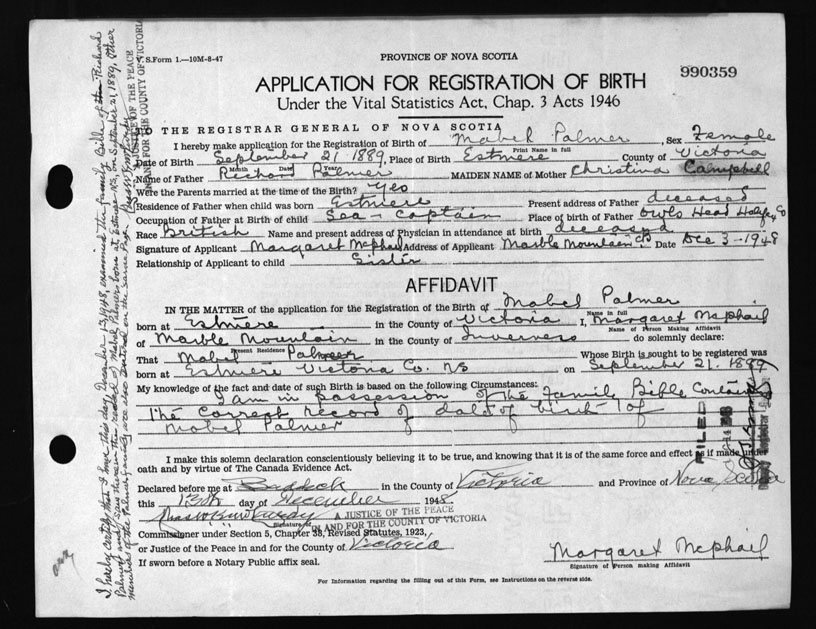 V.S. Form 1.—10M-8-47
PROVINCE OF NOVA SCOTIA
990359
APPLICATION FOR REGISTRATION OF BIRTH
Under the Vital Statistics Act, Chap. 3 Acts 1946
TO THE REGISTRAR GENERAL OF NOVA SCOTIA
I hereby make application for the Registration of Birth of Mabel Palmer, Sex Female
Print Name in full
Date of Birth September 21 1889, Place of Birth Estmere County of Victoria
Month Date Year
Name of Father Richard Palmer MAIDEN NAME of Mother Christina Campbell
Were the Parents married at the time of the Birth? Yes
Residence of Father when child was born Estmere Present address of Father deceased
Occupation of Father at Birth of child Sea-Captain Place of birth of Father Owls Head Halifax Co
Race British Name and present address of Physician in attendance at birth deceased
Signature of Applicant Margaret McPhail Address of Applicant Marble Mountain CB Date Dec 3-1948
Relationship of Applicant to child Sister
AFFIDAVIT
IN THE MATTER of the application for the Registration of the Birth of Mabel Palmer
Name in full
born at Estmere in the County of Victoria I, Margaret McPhail
Name of Person Making Affidavit
of Marble Mountain in the County of Inverness do solemnly declare:
Present Residence
That Mabel Palmer Whose Birth is sought to be registered was
born at Estmere Victoria Co. NS on September 21. 1889
My knowledge of the fact and date of such Birth is based on the following Circumstances:
I am in possession of the Family Bible Contains
the correct record of date of birth of
Mabel Palmer
I make this solemn declaration conscientiously believing it to be true, and knowing that it is of the same force and effect as if made under
oath and by virtue of The Canada Evidence Act.
Declared before me at Baddeck in the County of Victoria and Province of Nova Scotia
this 13th day of December 1948.
A JUSTICE OF THE PEACE
IN AND FOR THE COUNTY OF VICTORIA
Signature of
Commissioner under Section 5, Chapter 38, Revised Statutes, 1923,
or Justice of the Peace in and for the County of Victoria
If sworn before a Notary Public affix seal.
Margaret McPhail
Signature of Person making Affidavit
For Information regarding the filling out of this Form, see Instructions on the reverse side.
I hereby certify that I have this day, December 13, 1948, examined the family Bible of the Richard
Palmer and saw therein the record of Mabel Palmer born at Estmere NS, on September 21, 1889, other
members of the Palmer family are also entered on the same Page.
A JUSTICE OF THE PEACE
IN AND FOR THE COUNTY OF VICTORIA
FILED